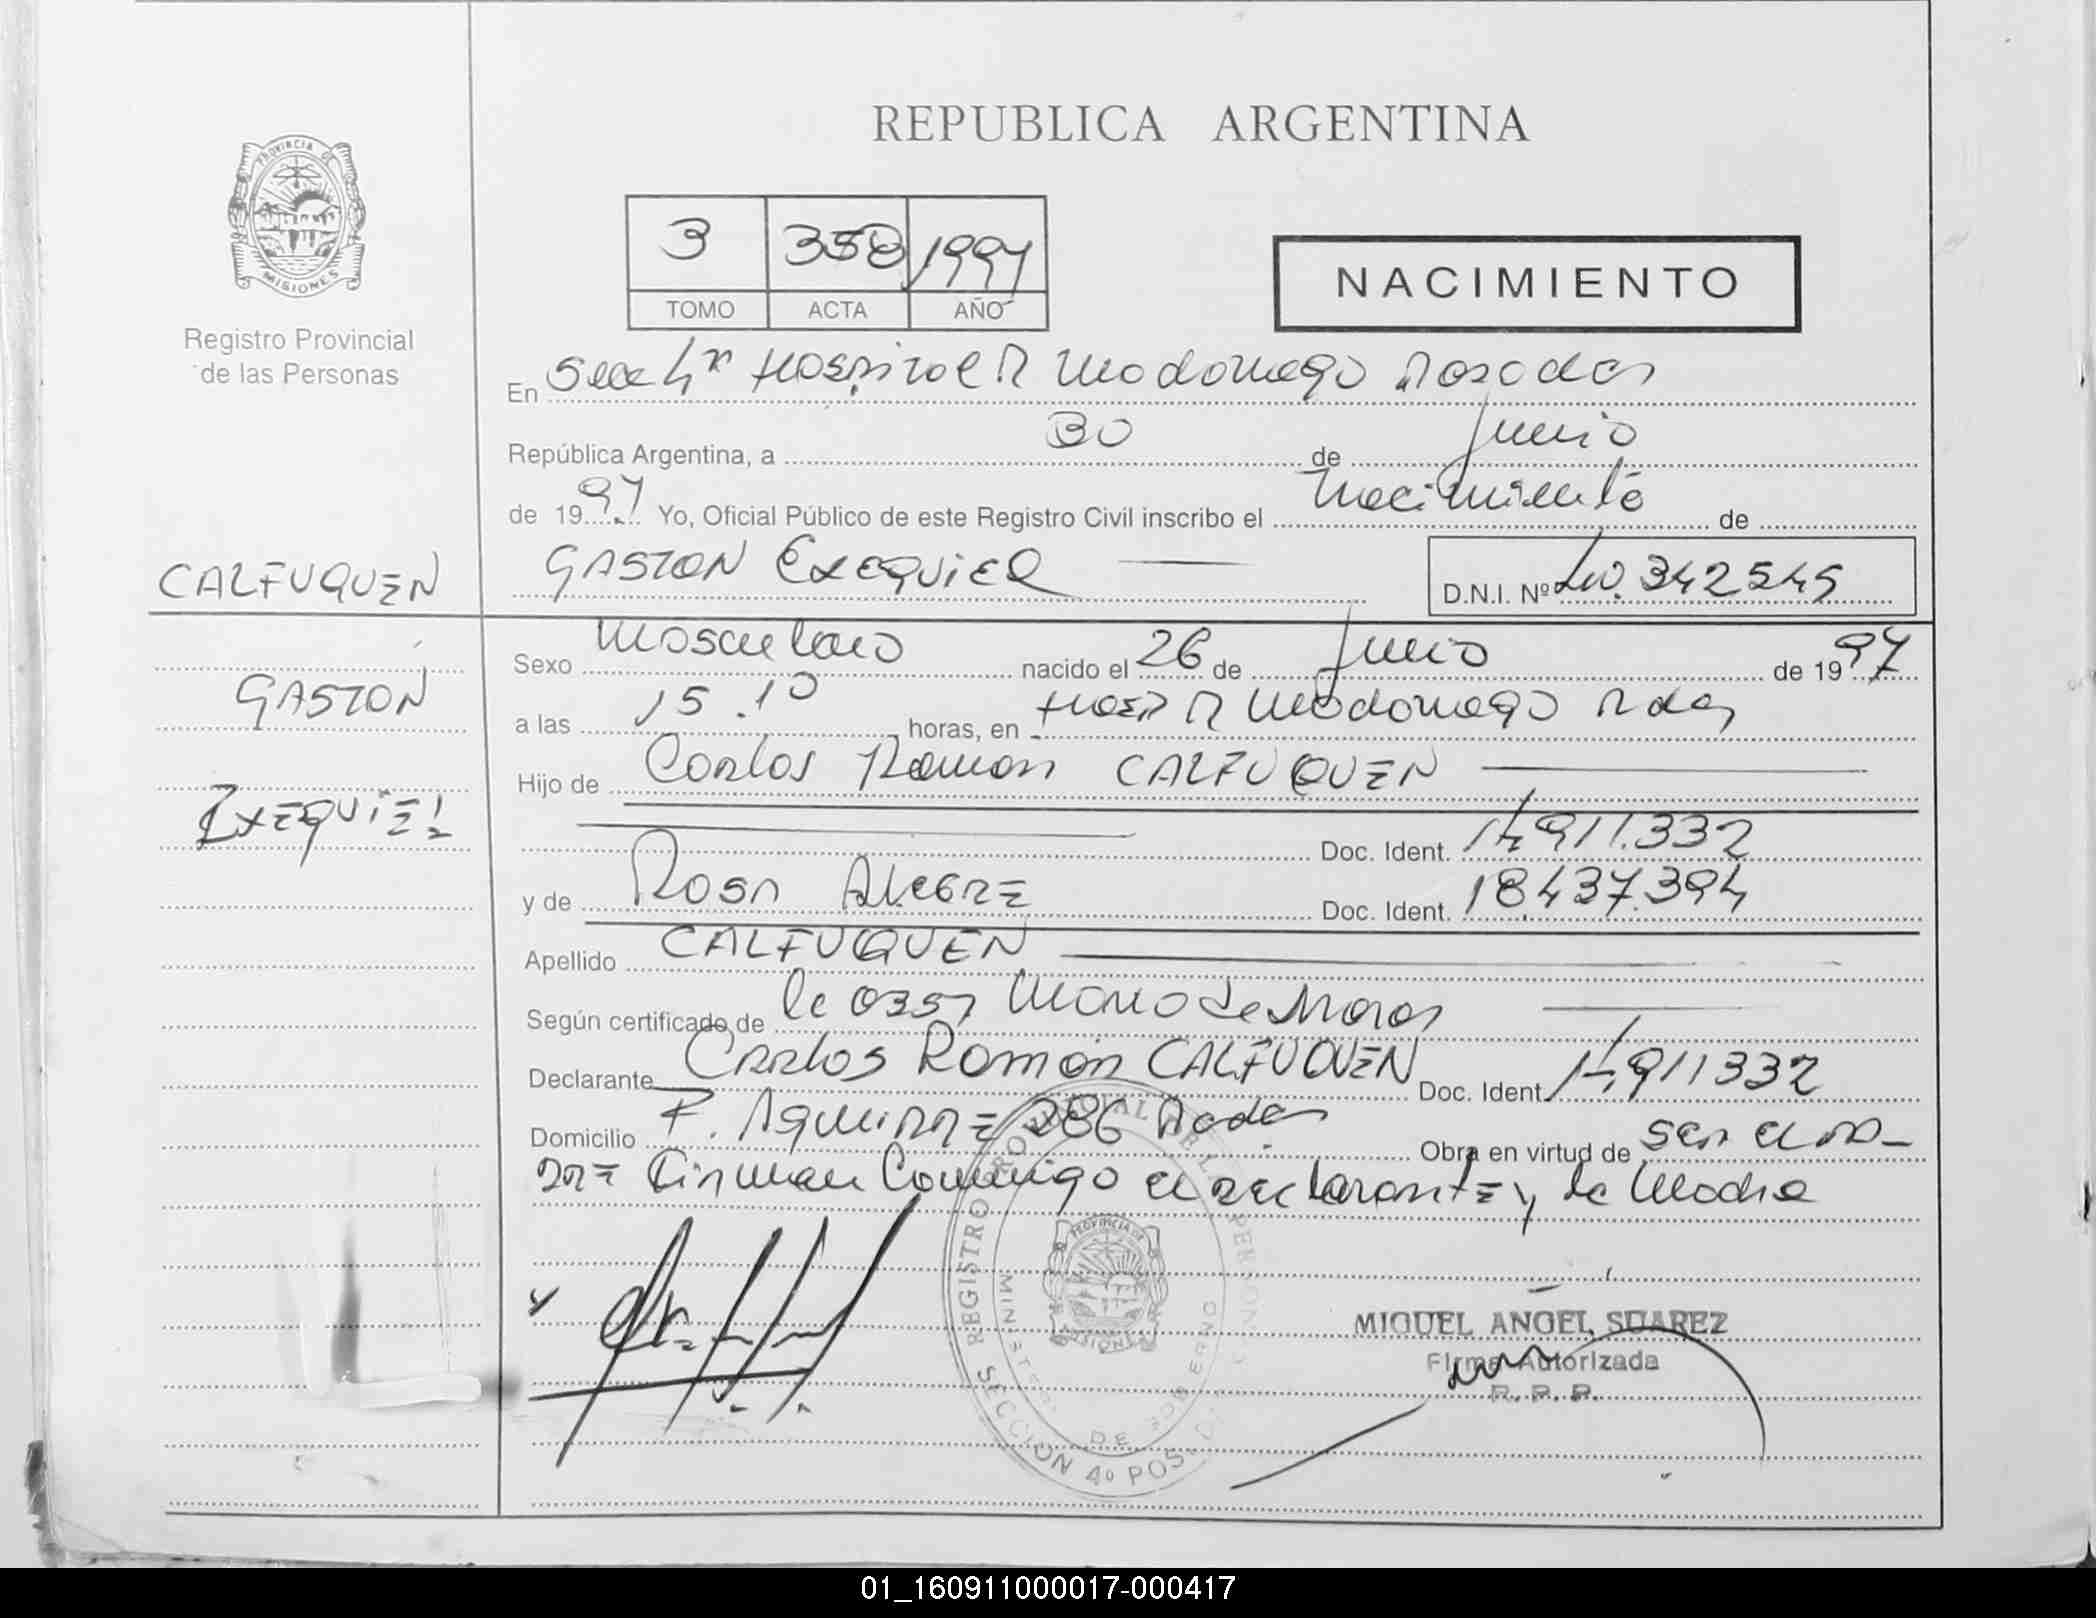 REPUBLICA ARGENTINA
PROVINCIA DE
MISIONES
Registro Provincial
de las Personas
3 358 1997
TOMO ACTA AÑO
NACIMIENTO
En Secc 4ª Hospital R Madariaga Posadas
República Argentina, a 30 de Junio
de 1997 Yo, Oficial Público de este Registro Civil inscribo el Nacimiento de
CALFUQUEN
GASTON EXEQUIEL
D.N.I. Nº 40.342545
GASTON
EXEQUIEL
Sexo Masculino nacido el 26 de Junio de 1997
a las 15.10 horas, en Hosp R Madariaga Pdas
Hijo de Carlos Ramon CALFUQUEN
Doc. Ident. 14,911.332
y de Rosa Alegre Doc. Ident. 18,437.394
Apellido CALFUQUEN
Según certificado de
Declarante Carlos Ramón CALFUQUEN Doc. Ident. 14,911332
Domicilio P. Aguirre 286 Pdas Obra en virtud de ser el pa-
dre Firman Conmigo el declarante y la Madre
REGISTRO PROVINCIAL DE LAS PERSONAS
MINISTERIO DE GOBIERNO
SECCION 4º POSADAS
MIGUEL ANGEL SUAREZ
Firma Autorizada
R. P. P.
01_160911000017-000417